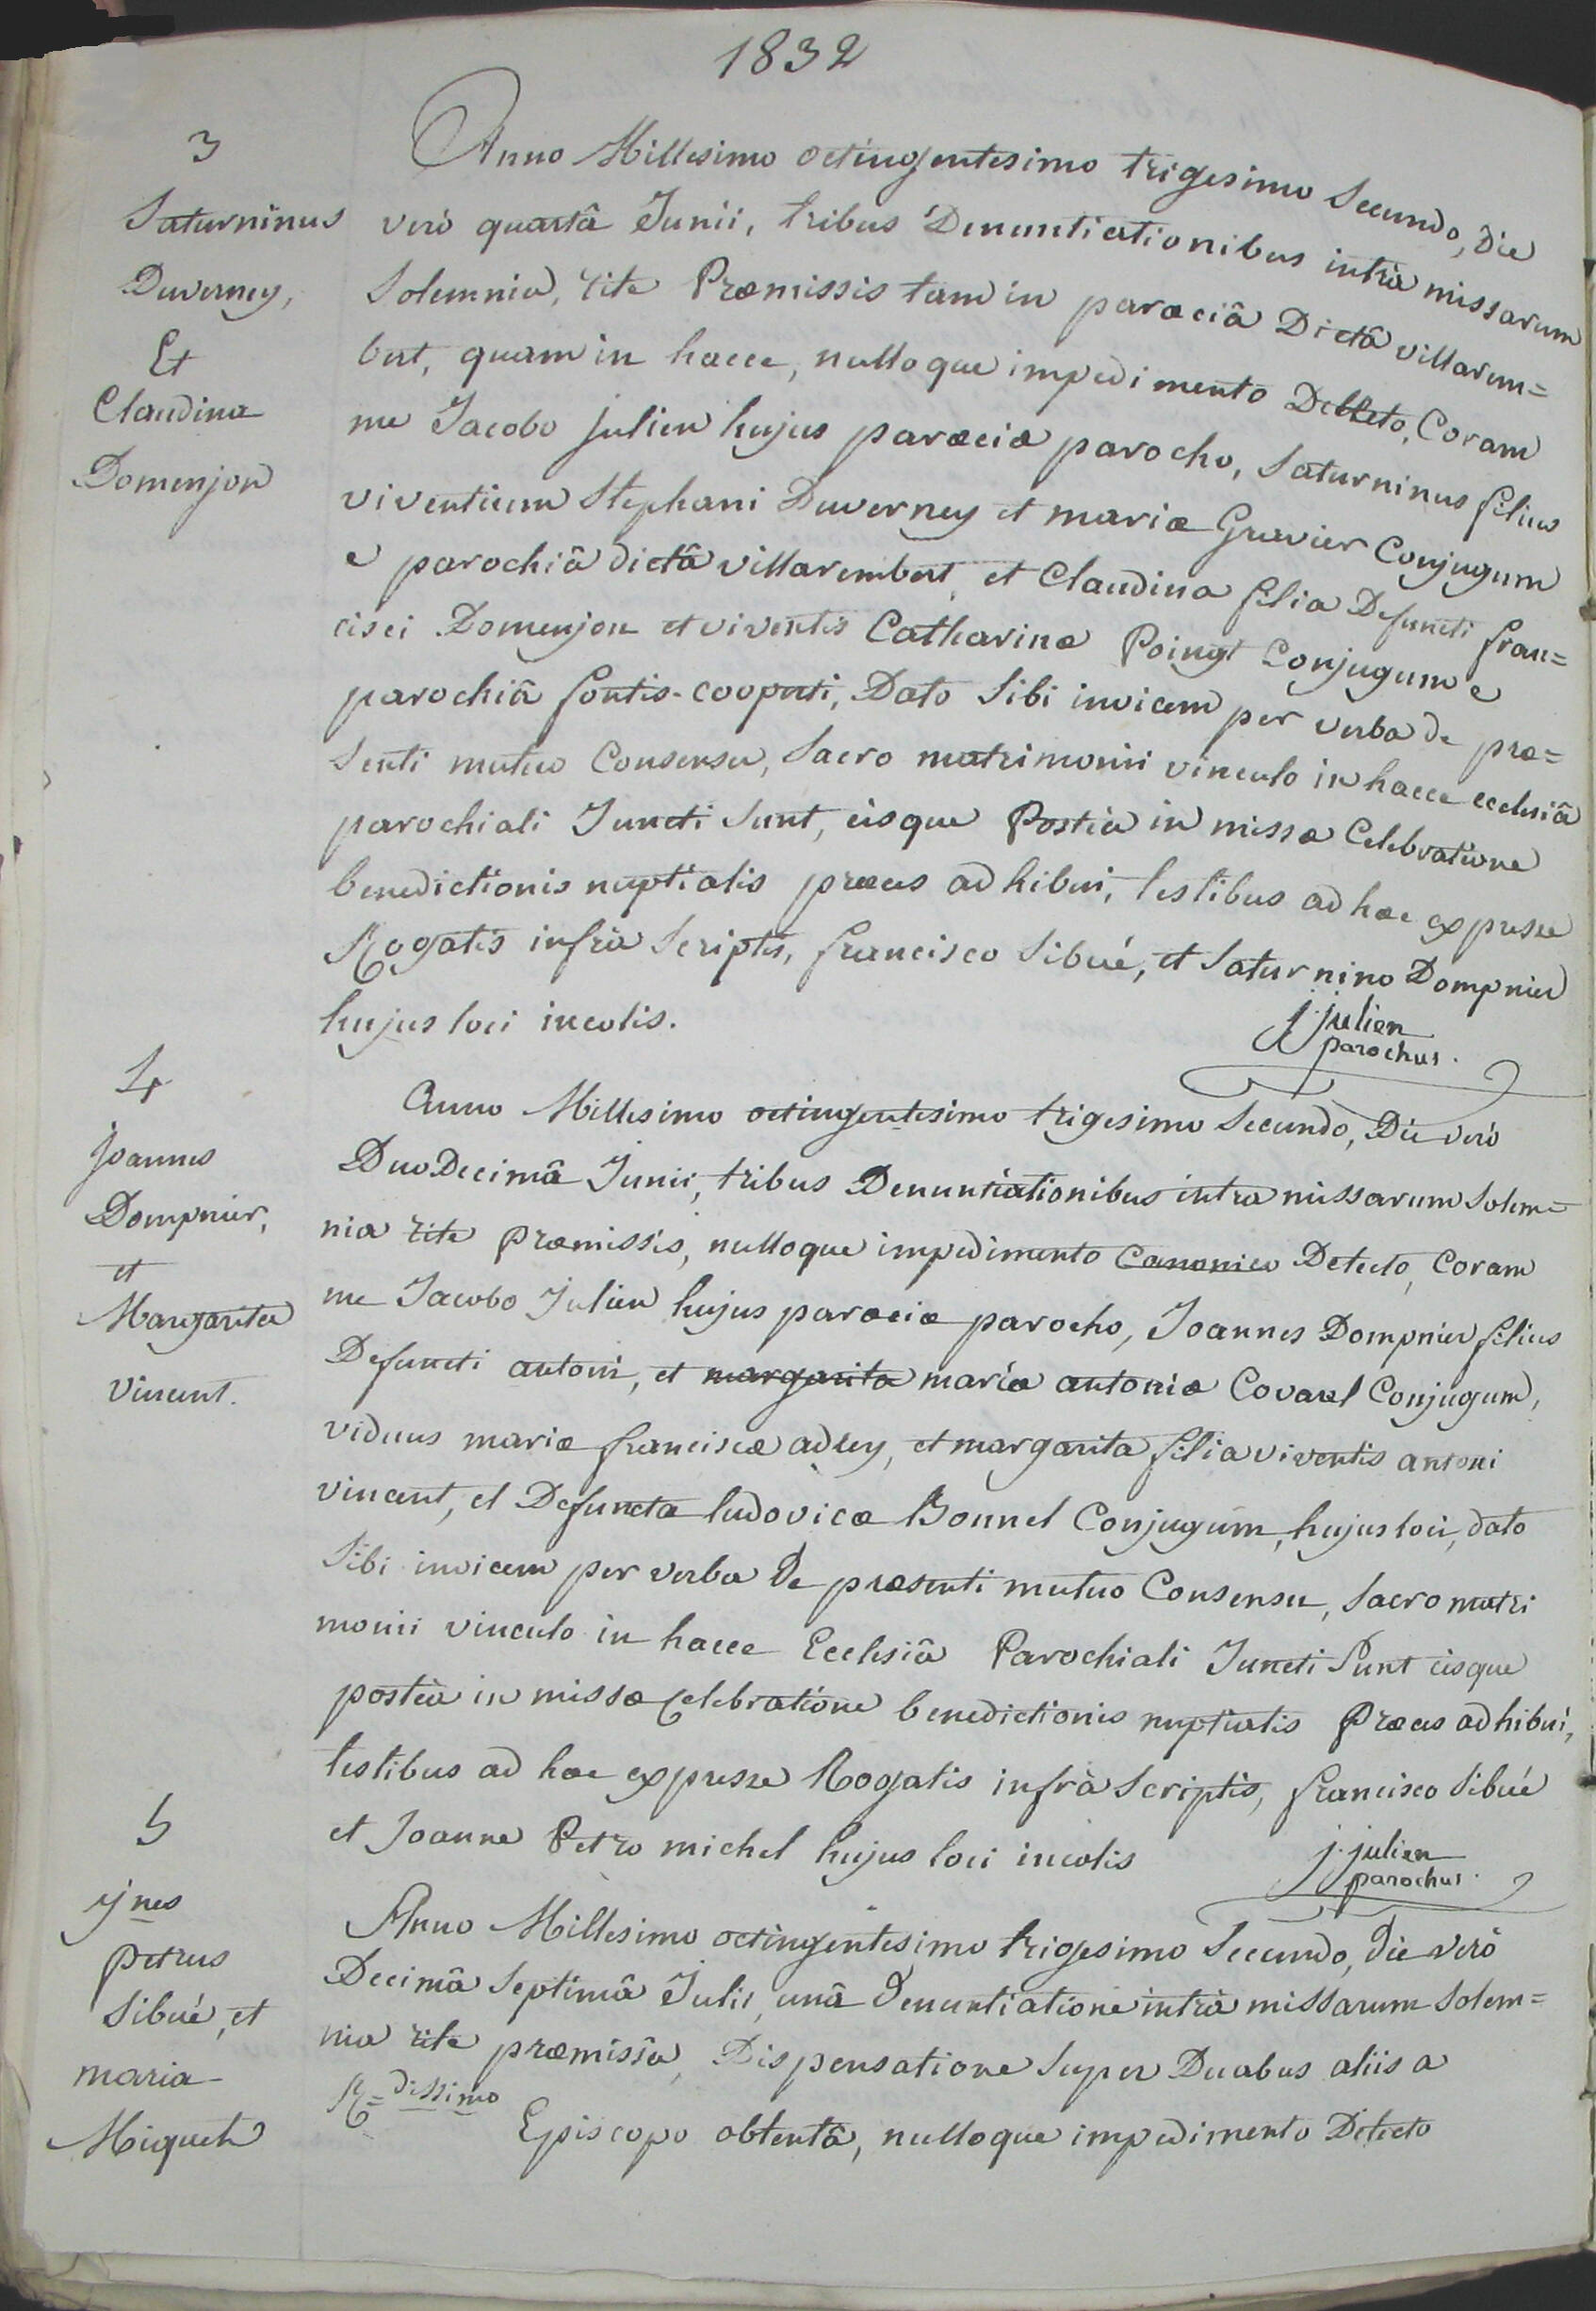 1832
3
Saturninus
Duverney,
Et
Claudina
Domenjon
Anno Millesimo octingentesimo trigesimo Secundo, Die
verò quartâ Junii, tribus Denuntiationibus intrà missarum
Solemnia, rite Præmissis tam in paræciâ Dictâ villarem=
bert, quam in hacce, nulloque impedimento Detecto, Coram
me Jacobo julien hujus paræciæ parocho, Saturninus filius
viventium Stephani Duverney et mariæ Gravier Conjugum
e parochiâ dictâ villarembert, et Claudina filia Defuncti fran=
cisci Domenjon et viventis Catharinæ Poingt Conjugum e
parochiâ fontis-cooperti, Dato Sibi invicem per verba de præ=
Senti mutuo Consensu, Sacro matrimonii vinculo in hacce ecclesiâ
parochiali Juncti Sunt, eisque Posteà in missæ Celebratione
benedictionis nuptialis preces adhibui, testibus ad hoc expresse
Rogatis infrà Scriptis, francisco Sibué, et Saturnino Dompnier
hujus loci incolis.
j. julien
parochus.
4
Joannes
Dompnier,
et
Margarita
Vincent.
Anno Millesimo octingentesimo trigesimo Secundo, Die verò
DuoDecimâ Junii, tribus Denuntiationibus intra missarum Solem=
nia rite Præmissis, nulloque impedimento Canonico Detecto, Coram
me Jacobo Julien hujus paræciæ parocho, Joannes Dompnier filius
Defuncti antoni, et margarita mariæ antoniæ Covarel Conjugum,
viduus mariæ franciscæ adley, et margarita filia viventis antoni
vincent, et Defunctæ ludovicæ Bonnel Conjugum, hujus loci, dato
Sibi invicem per verba De præsenti mutuo Consensu, Sacro matri
monii vinculo in hacce Ecclesiâ Parochiali Juncti Sunt eisque
posteà in missæ Celebratione benedictionis nuptialis Præces adhibui,
testibus ad hoc expresse Rogatis infrà Scriptis, francisco Sibué
et Joanne Petro michel hujus loci incolis
j. julien
parochus.
5
ijnes
petrus
Sibué, et
maria
Miquet
Anno Millesimo octingentesimo trigesimo Secundo, die verò
Decimâ Septimâ Julii, unâ Denuntiatione intrà missarum Solem=
nia rite præmissâ, Dispensatione Super Duabus aliis a
R=dissimo Episcopo obtentâ, nulloque impedimento Detecto